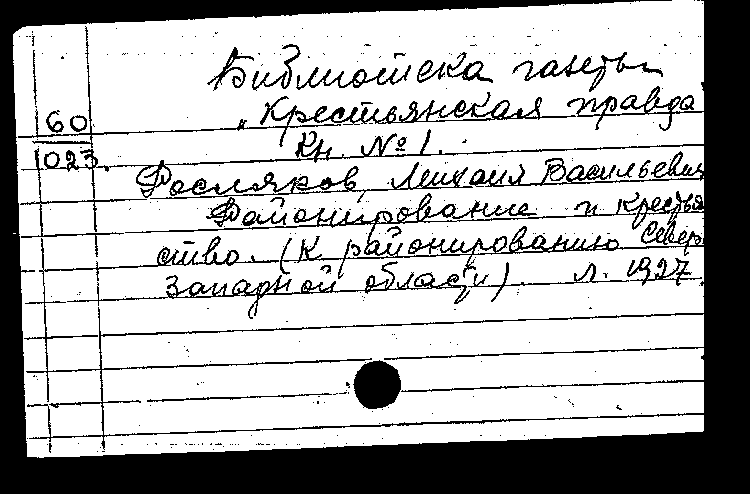 Библиотека газеты
„Крестьянская правда
60
Кн. № 1.
1023.
Росляков, Михаил Васильевич
Районирование и крестья
ство. (К районированию Север
Западной области). Л. 1927.